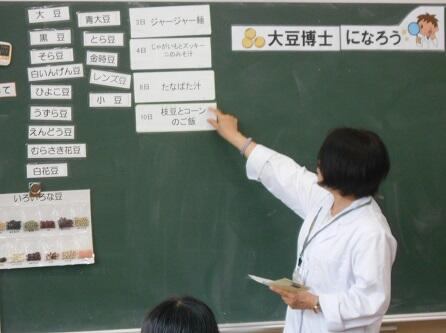 大豆博士になろう
大豆
黒豆
そら豆
白いんげん豆
ひよこ豆
うずら豆
えんどう豆
むらさき花豆
白花豆
青大豆
とら豆
金時豆
レンズ豆
小豆
3日 ジャージャー麺
4日 じゃがいもとズッキー
ニのみそ汁
8日 たなばた汁
10日 枝豆とコーン
のご飯
いろいろな豆
て